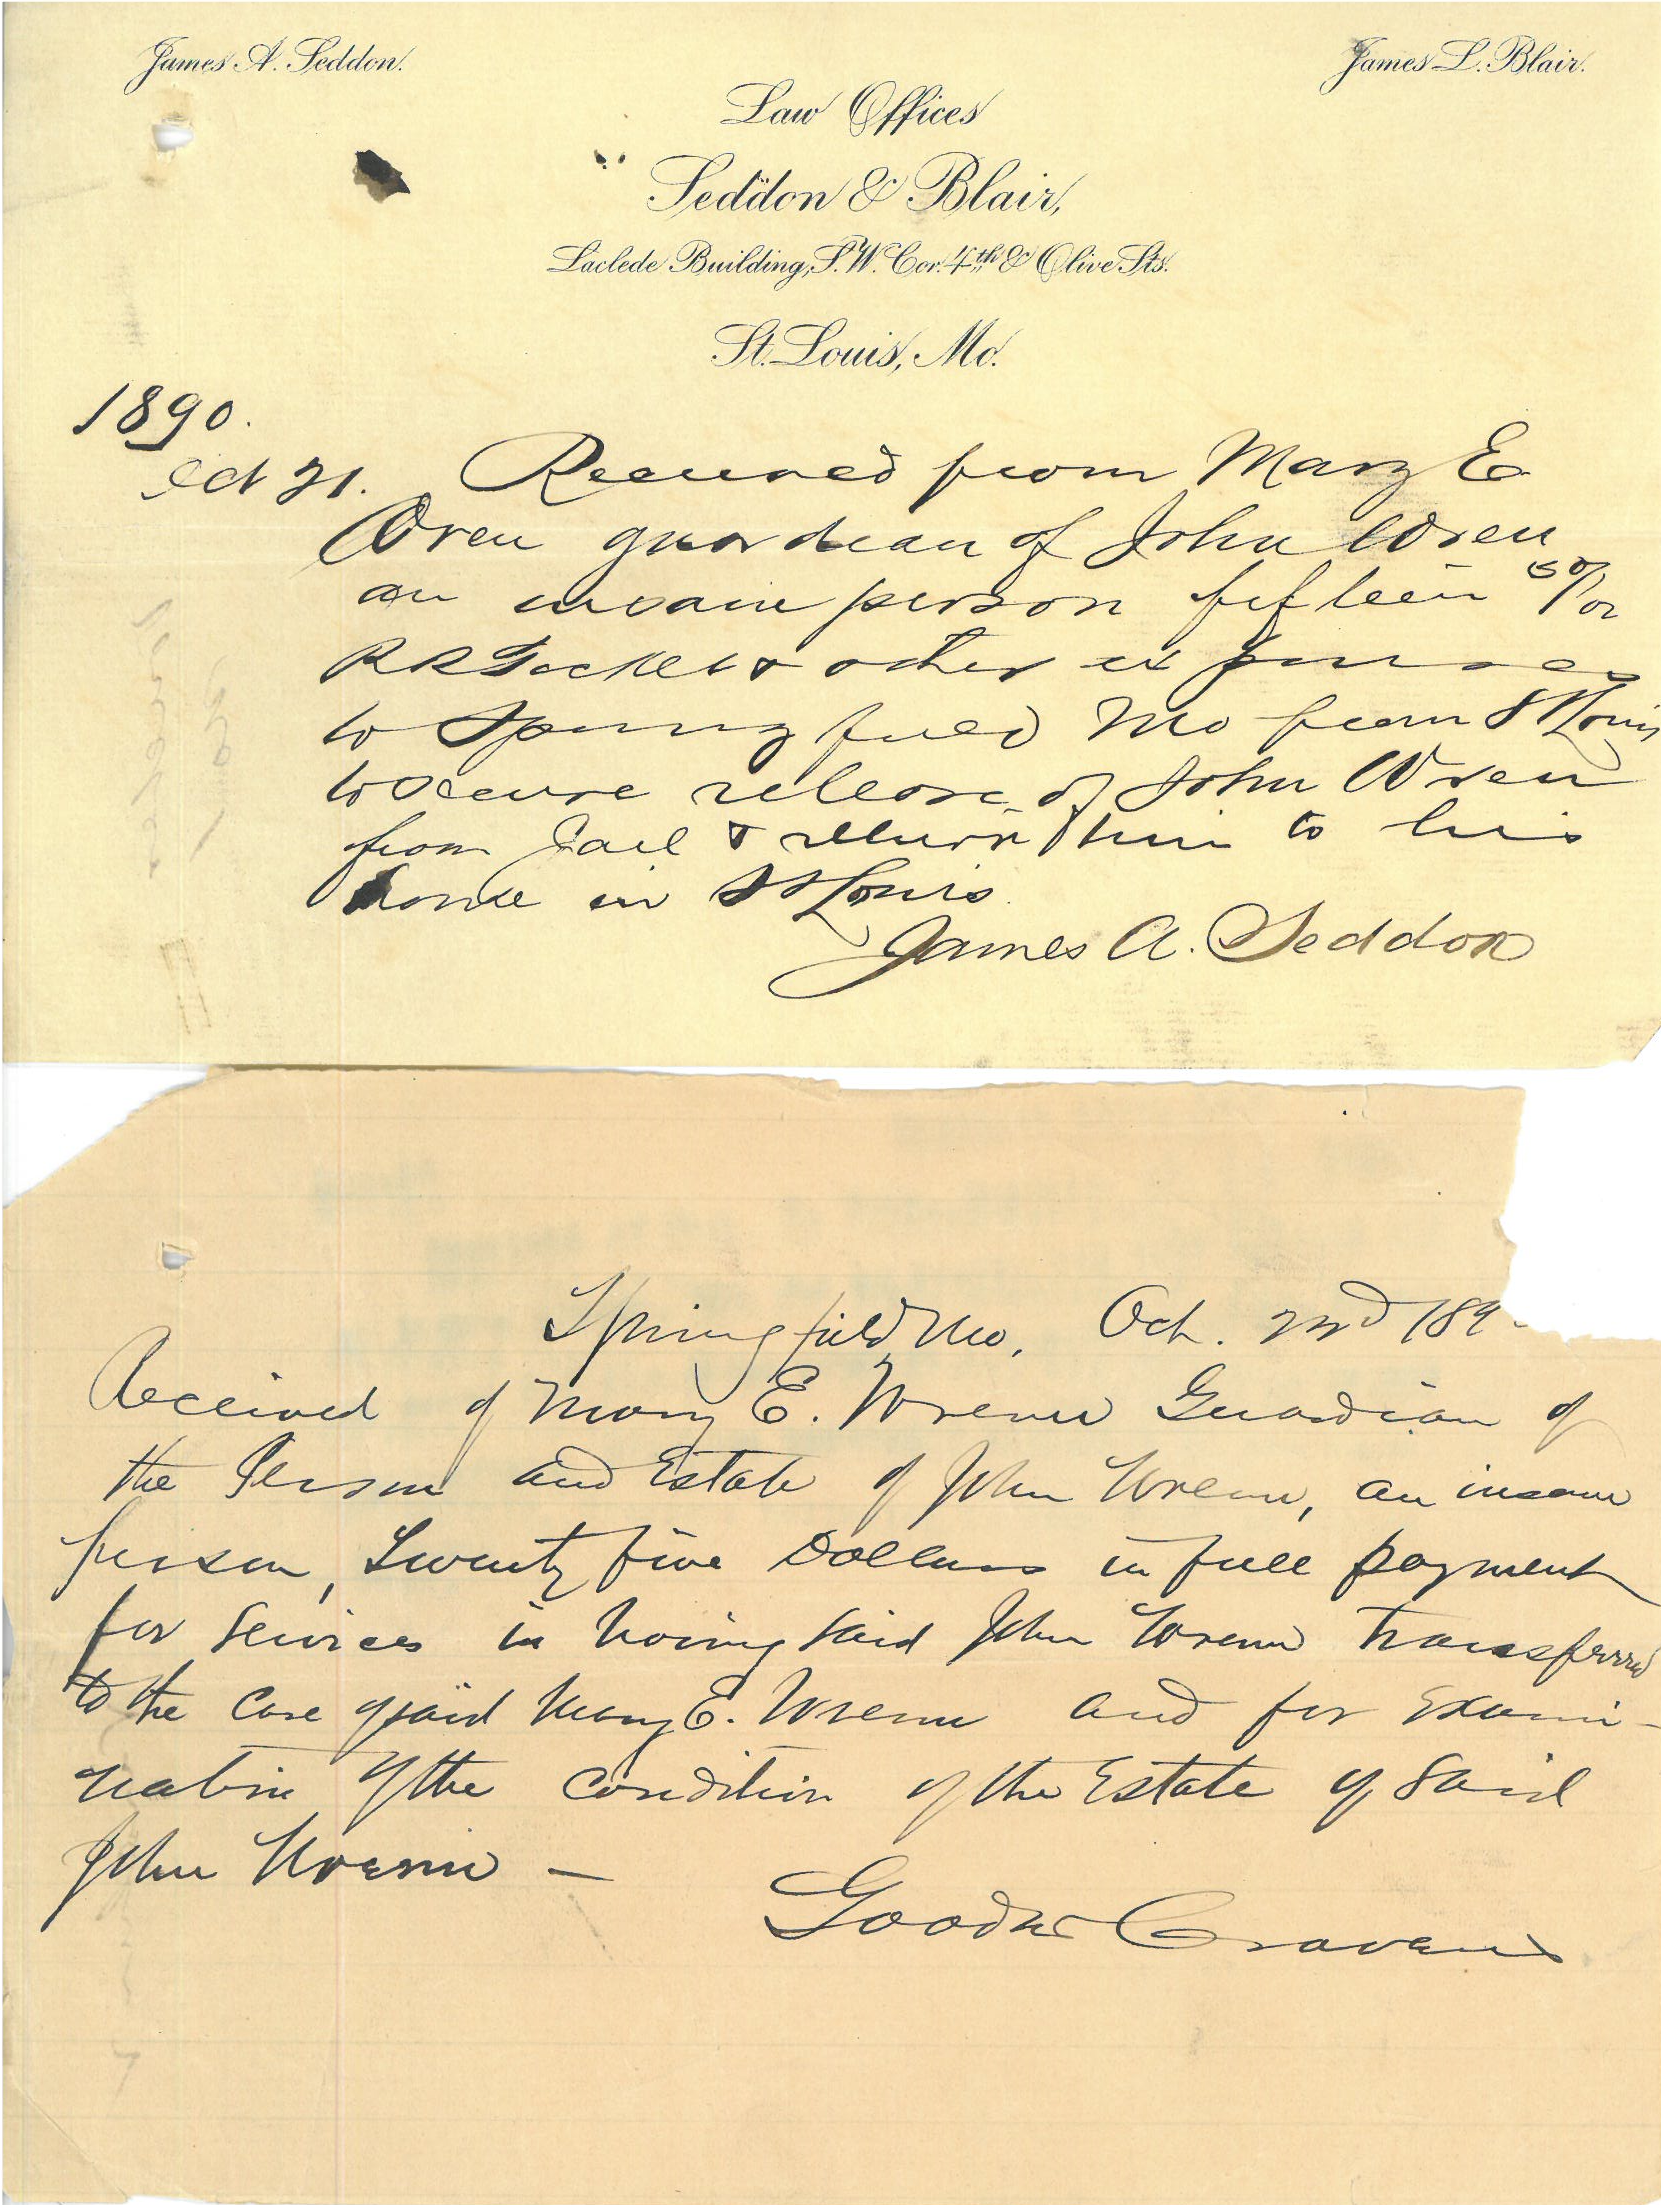 James A. Seddon.
James L. Blair.
Law Offices
Seddon & Blair,
Laclede Building, S.W. Cor. 4th & Olive Sts.
St. Louis, Mo.
1890.
Oct 21. Received from Mary E
Wren guardian of John Wren
an insane person fifteen 50/oo
RR Ticket & other expenses
to Springfield Mo from St Louis
to secure release of John Wren
from Jail & return him to his
home in St Louis
James A. Seddon
Springfield, Mo, Oct. 22nd 189
Received of Mary E. Wrenn Guardian of
the Person and Estate of John Wrenn, an insane
person, Twenty five Dollars in full payment
for services in having said John Wrenn transferred
to the Care of said Mary E. Wrenn and for Exami-
nation of the Condition of the Estate of said
John Wrenn –
Goode & Cravens